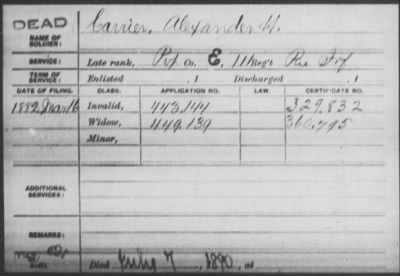 DEAD
NAME OF SOLDIER: Carrier, Alexander W.
SERVICE: Late rank, Pvt Co. E, 11 Reg't R.I. Inf
TERM OF SERVICE: Enlisted , 1 Discharged , 1
DATE OF FILING. CLASS. APPLICATION NO. LAW. CERTIFICATE NO.
1882 Mar 16 Invalid, 443,144 329,832
Widow, 449,139 360,795
Minor,
ADDITIONAL SERVICES:
REMARKS:
Died July 7, 1890, at